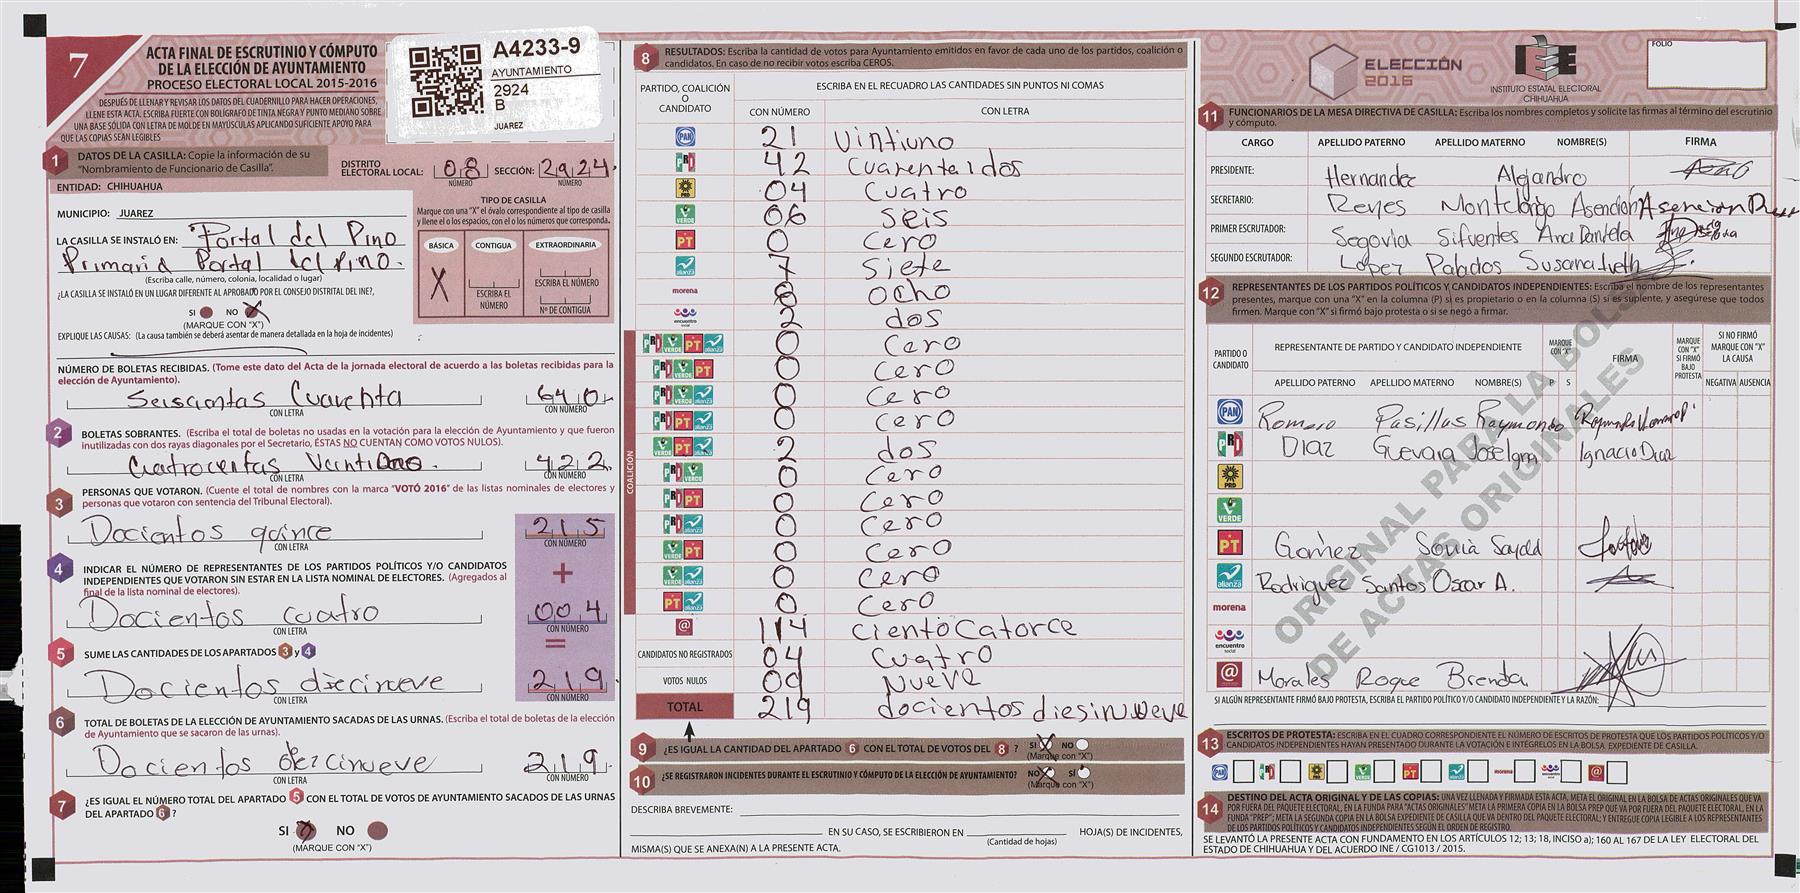 7
ACTA FINAL DE ESCRUTINIO Y CÓMPUTO
DE LA ELECCIÓN DE AYUNTAMIENTO
PROCESO ELECTORAL LOCAL 2015-2016
DESPUÉS DE LLENAR Y REVISAR LOS DATOS DEL CUADERNILLO PARA HACER OPERACIONES,
LLENE ESTA ACTA. ESCRIBA FUERTE CON BOLÍGRAFO DE TINTA NEGRA Y PUNTO MEDIANO SOBRE
UNA BASE SÓLIDA CON LETRA DE MOLDE EN MAYÚSCULAS APLICANDO SUFICIENTE APOYO PARA
QUE LAS COPIAS SEAN LEGIBLES
A4233-9
AYUNTAMIENTO
2924
B
JUAREZ
1 DATOS DE LA CASILLA: Copie la información de su
"Nombramiento de Funcionario de Casilla".
DISTRITO ELECTORAL LOCAL: 08 NÚMERO SECCIÓN: 2924 NÚMERO
ENTIDAD: CHIHUAHUA
MUNICIPIO: JUAREZ
LA CASILLA SE INSTALÓ EN: Portal del Pino
Primaria Portal del Pino.
(Escriba calle, número, colonia, localidad o lugar)
¿LA CASILLA SE INSTALÓ EN UN LUGAR DIFERENTE AL APROBADO POR EL CONSEJO DISTRITAL DEL INE?,
SI NO X
(MARQUE CON "X")
EXPLIQUE LAS CAUSAS: (La causa también se deberá asentar de manera detallada en la hoja de incidentes)
TIPO DE CASILLA
Marque con una "X" el óvalo correspondiente al tipo de casilla
y llene el o los espacios, con el o los números que corresponda.
BÁSICA CONTIGUA EXTRAORDINARIA
X
ESCRIBA EL NÚMERO
ESCRIBA EL NÚMERO
Nº DE CONTIGUA
NÚMERO DE BOLETAS RECIBIDAS. (Tome este dato del Acta de la jornada electoral de acuerdo a las boletas recibidas para la
elección de Ayuntamiento).
Seiscientas Cuarenta 640
CON LETRA CON NÚMERO
2 BOLETAS SOBRANTES. (Escriba el total de boletas no usadas en la votación para la elección de Ayuntamiento y que fueron
inutilizadas con dos rayas diagonales por el Secretario, ÉSTAS NO CUENTAN COMO VOTOS NULOS).
422
CON LETRA CON NÚMERO
3 PERSONAS QUE VOTARON. (Cuente el total de nombres con la marca "VOTÓ 2016" de las listas nominales de electores y
personas que votaron con sentencia del Tribunal Electoral).
Docientos quince 215
CON LETRA CON NÚMERO
+
4 INDICAR EL NÚMERO DE REPRESENTANTES DE LOS PARTIDOS POLÍTICOS Y/O CANDIDATOS
INDEPENDIENTES QUE VOTARON SIN ESTAR EN LA LISTA NOMINAL DE ELECTORES. (Agregados al
final de la lista nominal de electores).
Docientos cuatro 004
CON LETRA CON NÚMERO
=
5 SUME LAS CANTIDADES DE LOS APARTADOS 3 y 4
Docientos diecinueve 219
CON LETRA CON NÚMERO
6 TOTAL DE BOLETAS DE LA ELECCIÓN DE AYUNTAMIENTO SACADAS DE LAS URNAS. (Escriba el total de boletas de la elección
de Ayuntamiento que se sacaron de las urnas).
Docientos 219
CON LETRA CON NÚMERO
7 ¿ES IGUAL EL NÚMERO TOTAL DEL APARTADO 5 CON EL TOTAL DE VOTOS DE AYUNTAMIENTO SACADOS DE LAS URNAS
DEL APARTADO 6 ?
SI X NO
(MARQUE CON "X")
8 RESULTADOS: Escriba la cantidad de votos para Ayuntamiento emitidos en favor de cada uno de los partidos, coalición o
candidatos. En caso de no recibir votos escriba CEROS.
PARTIDO, COALICIÓN O CANDIDATO
ESCRIBA EN EL RECUADRO LAS CANTIDADES SIN PUNTOS NI COMAS
CON NÚMERO CON LETRA
PAN 21 Vintiuno
PRI 42 Cuarentaidos
PRD 04 Cuatro
VERDE 06 Seis
PT 0 Cero
alianza 7 Siete
morena 8 ocho
encuentro social 2 dos
COALICIÓN
PRI VERDE PT alianza 0 Cero
PRI VERDE PT 0 Cero
PRI VERDE alianza 0 Cero
PRI PT alianza 0 Cero
VERDE PT alianza 2 dos
PRI VERDE 0 Cero
PRI PT 0 Cero
PRI alianza 0 Cero
VERDE PT 0 Cero
VERDE alianza 0 Cero
PT alianza 0 Cero
@ 114 ciento catorce
CANDIDATOS NO REGISTRADOS 04 Cuatro
VOTOS NULOS 09 Nueve
TOTAL 219 docientos diesinueve
9 ¿ES IGUAL LA CANTIDAD DEL APARTADO 6 CON EL TOTAL DE VOTOS DEL 8 ? SI X NO
(Marque con "X")
10 ¿SE REGISTRARON INCIDENTES DURANTE EL ESCRUTINIO Y CÓMPUTO DE LA ELECCIÓN DE AYUNTAMIENTO? NO X SÍ
(Marque con "X")
DESCRIBA BREVEMENTE:
EN SU CASO, SE ESCRIBIERON EN HOJA(S) DE INCIDENTES,
(Cantidad de hojas)
MISMA(S) QUE SE ANEXA(N) A LA PRESENTE ACTA.
ELECCIÓN
2016
IEE
INSTITUTO ESTATAL ELECTORAL
CHIHUAHUA
FOLIO
11 FUNCIONARIOS DE LA MESA DIRECTIVA DE CASILLA: Escriba los nombres completos y solicite las firmas al término del escrutinio
y cómputo.
CARGO APELLIDO PATERNO APELLIDO MATERNO NOMBRE(S) FIRMA
PRESIDENTE: Hernandez Alejandro
SECRETARIO: Reyes Montelongo Asención
PRIMER ESCRUTADOR: Segovia Sifuentes Ana Daniela
SEGUNDO ESCRUTADOR: Lopez Palados Susana Iveth
12 REPRESENTANTES DE LOS PARTIDOS POLÍTICOS Y CANDIDATOS INDEPENDIENTES: Escriba el nombre de los representantes
presentes, marque con una "X" en la columna (P) si es propietario o en la columna (S) si es suplente, y asegúrese que todos
firmen. Marque con "X" si firmó bajo protesta o si se negó a firmar.
PARTIDO O CANDIDATO
REPRESENTANTE DE PARTIDO Y CANDIDATO INDEPENDIENTE
MARQUE CON "X"
FIRMA
MARQUE CON "X" SI FIRMÓ BAJO PROTESTA
SI NO FIRMÓ MARQUE CON "X" LA CAUSA
APELLIDO PATERNO APELLIDO MATERNO NOMBRE(S) P S NEGATIVA AUSENCIA
PAN Romero Pasillas Raymundo
PRI DIAZ Guevara Jose Ignacio Diaz
PRD
VERDE
PT Gomez Sonia Sayda
alianza Rodriguez Santos Oscar A.
morena
encuentro social
@ Morales Roque Brenda
ORIGINAL PARA LA BOLSA
DE ACTAS ORIGINALES
SI ALGÚN REPRESENTANTE FIRMÓ BAJO PROTESTA, ESCRIBA EL PARTIDO POLÍTICO Y/O CANDIDATO INDEPENDIENTE Y LA RAZÓN:
13 ESCRITOS DE PROTESTA: ESCRIBA EN EL CUADRO CORRESPONDIENTE EL NÚMERO DE ESCRITOS DE PROTESTA QUE LOS PARTIDOS POLÍTICOS Y/O
CANDIDATOS INDEPENDIENTES HAYAN PRESENTADO DURANTE LA VOTACIÓN E INTÉGRELOS EN LA BOLSA EXPEDIENTE DE CASILLA.
PAN PRI PRD VERDE PT alianza morena encuentro social @
14 DESTINO DEL ACTA ORIGINAL Y DE LAS COPIAS: UNA VEZ LLENADA Y FIRMADA ESTA ACTA, META EL ORIGINAL EN LA BOLSA DE ACTAS ORIGINALES QUE VA
POR FUERA DEL PAQUETE ELECTORAL, EN LA FUNDA PARA "ACTAS ORIGINALES" META LA PRIMERA COPIA EN LA BOLSA PREP QUE VA POR FUERA DEL PAQUETE ELECTORAL, EN LA
FUNDA "PREP"; META LA SEGUNDA COPIA EN LA BOLSA EXPEDIENTE DE CASILLA QUE VA DENTRO DEL PAQUETE ELECTORAL; Y ENTREGUE COPIA LEGIBLE A LOS REPRESENTANTES
DE LOS PARTIDOS POLÍTICOS Y CANDIDATOS INDEPENDIENTES SEGÚN EL ORDEN DE REGISTRO.
SE LEVANTÓ LA PRESENTE ACTA CON FUNDAMENTO EN LOS ARTÍCULOS 12; 13; 18, INCISO a); 160 AL 167 DE LA LEY ELECTORAL DEL
ESTADO DE CHIHUAHUA Y DEL ACUERDO INE / CG1013 / 2015.